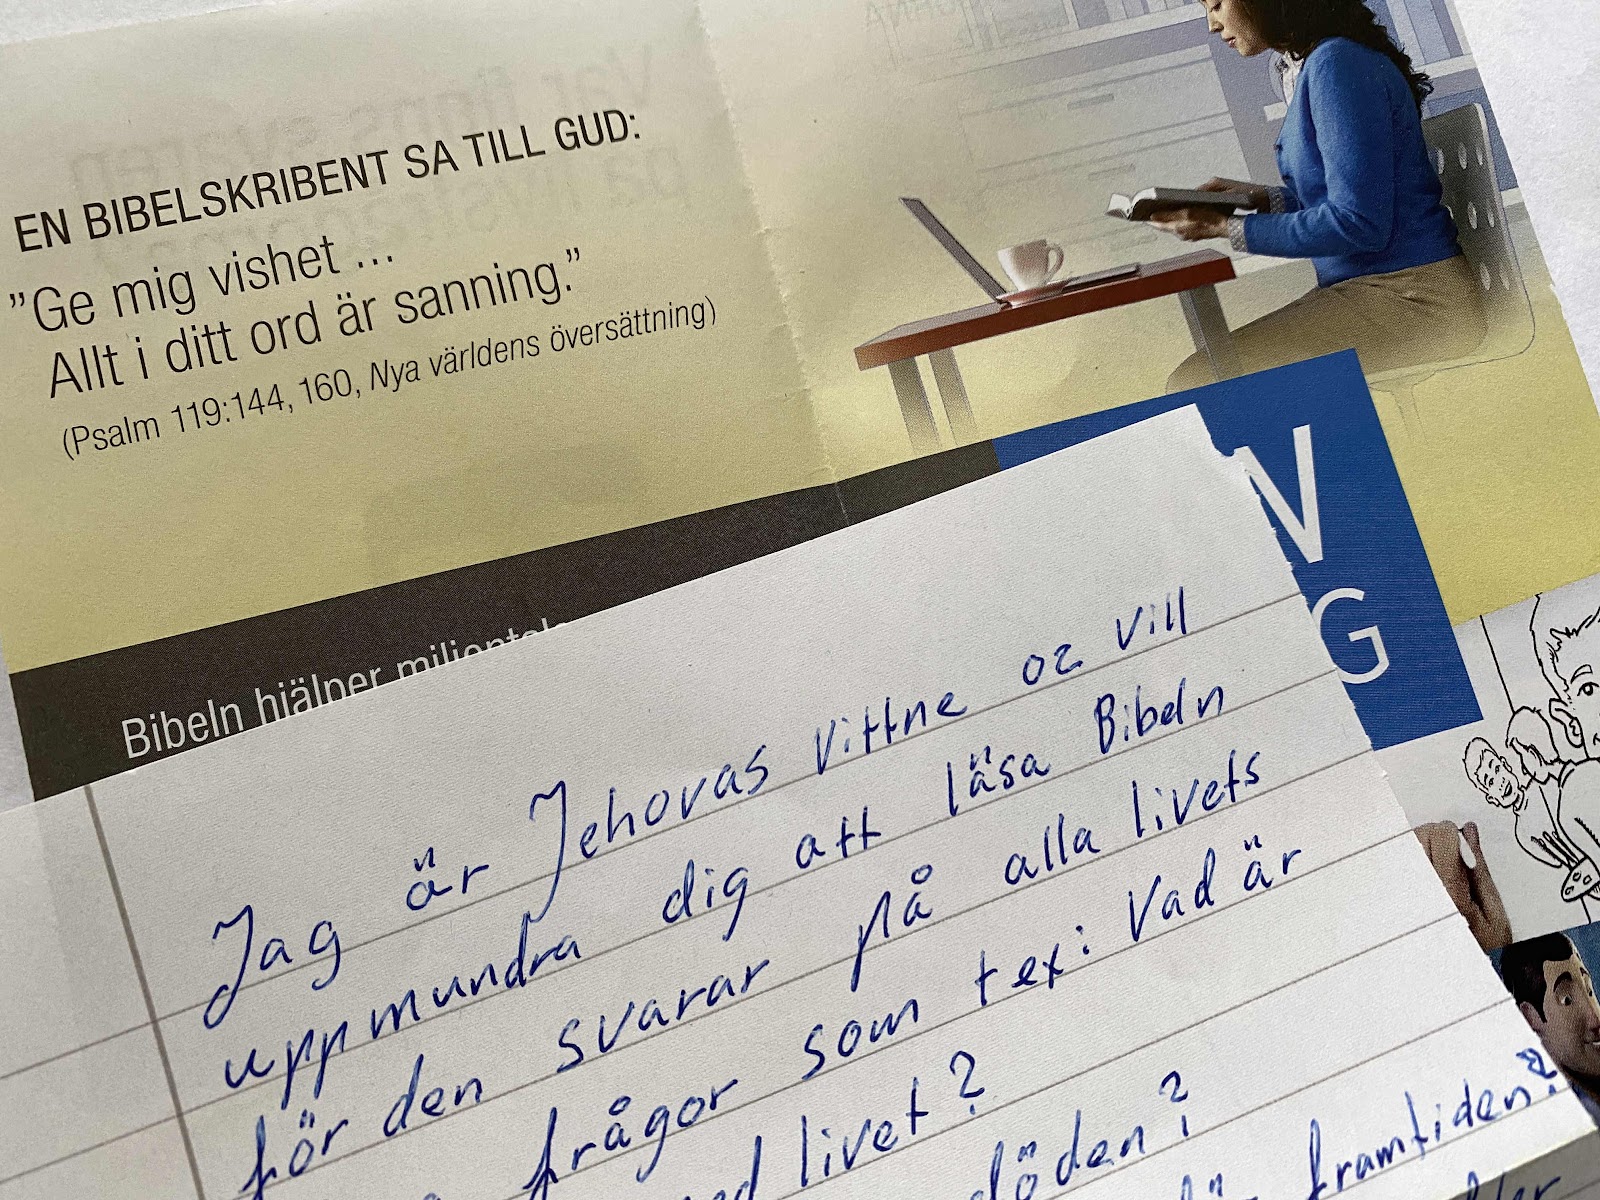 EN BIBELSKRIBENT SA TILL GUD:
”Ge mig vishet ...
Allt i ditt ord är sanning.”
(Psalm 119:144, 160, Nya världens översättning)
Bibeln hjälper
V
G
Jag är Jehovas Vittne oz vill
uppmundra dig att läsa Bibeln
för den svarar på alla livets
frågor som tex: Vad är
livet?
döden?
framtiden?